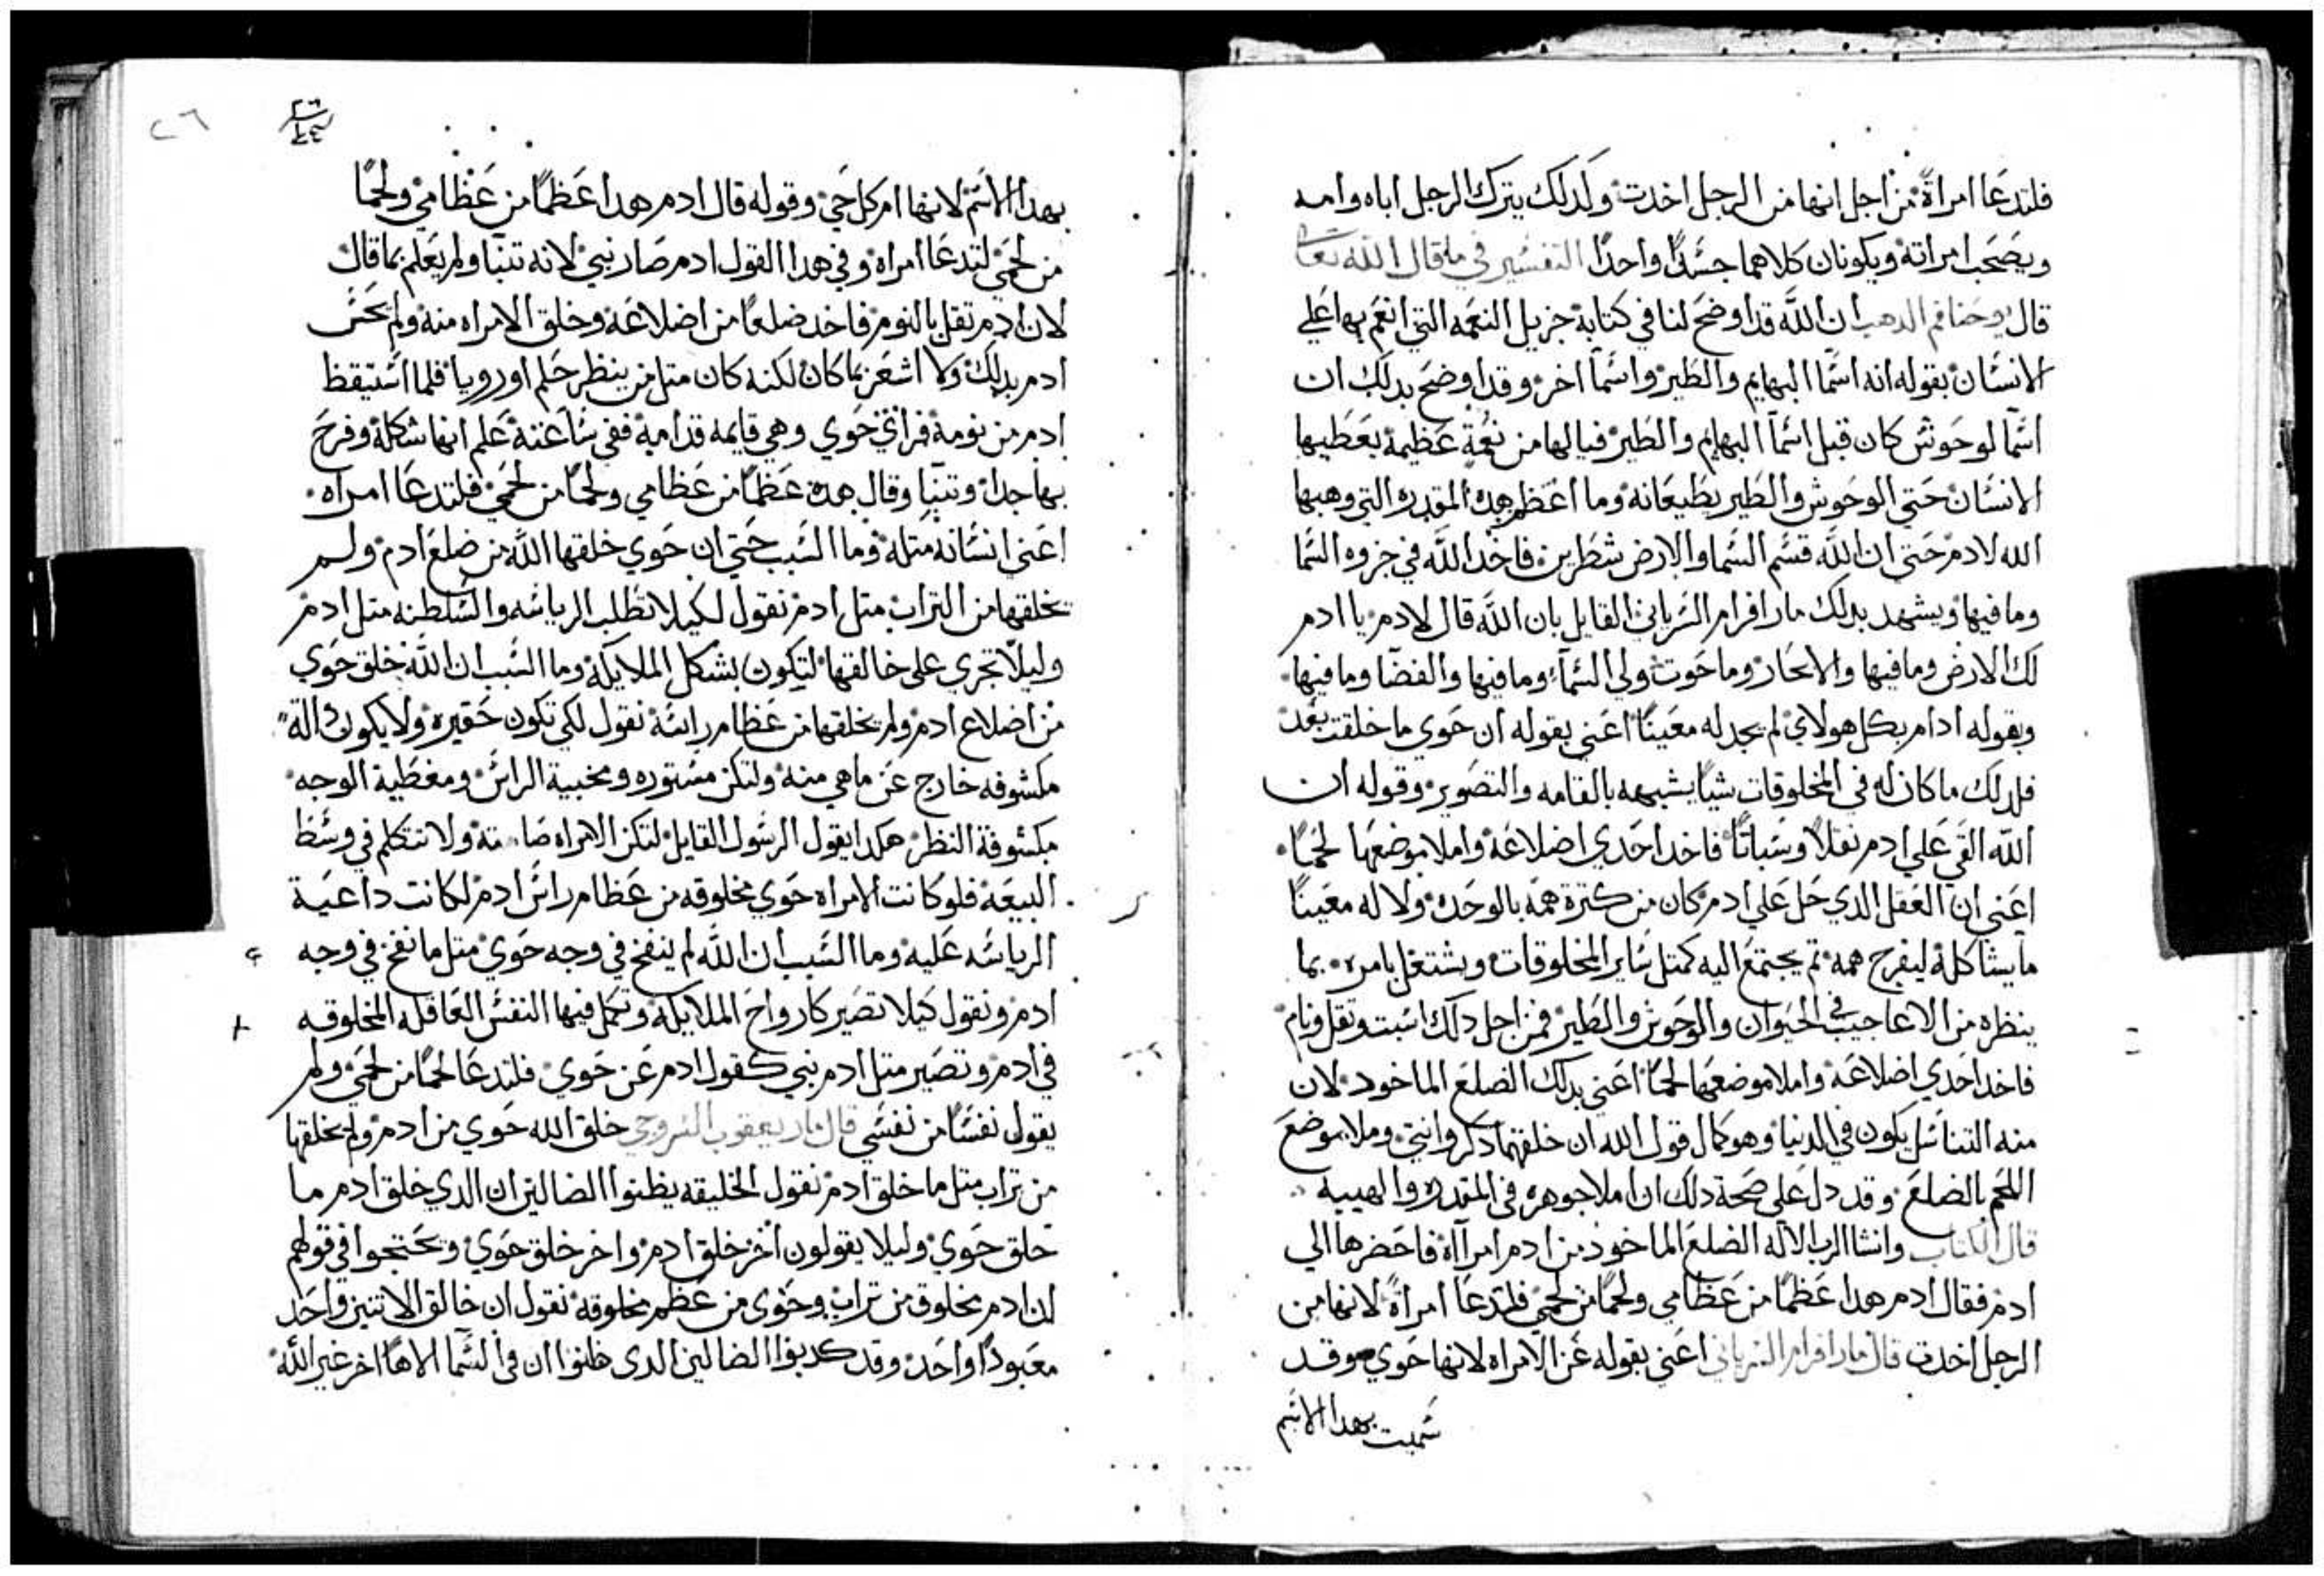 فلتدعا امراة من اجل انها من الرجل اخدت ولدلك يترك الرجل اباه وامه
ويصحب امراته ويكونان كلاهما جسدا واحدا التفسير في ما قال الله تعا
قال يوحنا فم الدهب ان الله قد اوضح لنا في كتابه جزيل النعمه التي انعم بها علي
الانسان بقوله انه اسما البهايم والطير واسما اخر وقد اوضح بدلك ان
اسما لوحوش كان قبل اسما البهايم والطير فيالها من نعمة عظيمة يعطيها
الانسان حتي الوحوش والطير يطيعانه وما اعظم هده المقدره التي وهبها
الله لادم حتي ان الله قسم السما والارض شطرين فاخد الله في جزوه السما
وما فيها ويشهد بدلك مار افرام السرياني القايل بان الله قال لادم يا ادم
لك الارض وما فيها والابحار وما حوت ولي السماء وما فيها والفضا وما فيها
وبقوله ادام بكل هولاي لم يجد له معينا اعني بقوله ان حوي ما خلقت بعد
فلدلك ما كان له في المخلوقات شيا يشبهه بالقامه والتصوير وقوله ان
الله القي علي ادم تقلا وسباتا فاخد احدي اضلاعه واملا موضعها لحما
اعني ان العقل الدي حل علي ادم كان من كترة همه بالوحده ولا له معينا
ما يشاكلة ليفرج همه تم يجتمع اليه كمتل ساير المخلوقات ويشتغل بامره بما
ينظره من الاعاجيب في الحيوان والوحوش والطير فمن اجل دلك اسبت وتقل ونام
فاخد احدي اضلاعه واملا موضعها لحما اعني بدلك الضلع الماخود لان
منه التناسل يكون في الدنيا وهو كمال قول الله ان خلقتهما دكر وانتي وملا موضع
اللحم بالضلع وقد دل علي صحة دلك ان املا جوهره في المقدره والهيبه
قال الكتاب وانشا الرب الاله الضلع الماخود من ادم امراة فاحضرها الي
ادم فقال ادم هدا عظما من عظامي ولحما من لحمي فلتدعا امراة لانها من
الرجل اخدت قال مار افرام السرياني اعني بقوله عن الامراه لانها حوي وقد
سميت بهدا الاسم
٢٦
بهدا الاسم لانها ام كل حي وقوله قال ادم هدا عظما من عظامي ولحما
من لحمي لتدعا امراه وفي هدا القول ادم صار نبي لانه تنبا ولم يعلم بما قال
لان ادم تقل بالنوم فاخد ضلعا من اضلاعه وخلق الامراه منه ولم يحس
ادم بدلك ولا اشعر بما كان لكنه كان متل من ينظر حلم او رويا فلما استيقظ
ادم من نومة فراي حوي وهي قايمه قدامه ففي ساعته علم انها شكلة وفرح
بها جدا وتنبا وقال هده عظما من عظامي ولحما من لحمي فلتدعا امراه
اعني انسانه متله وما السبب حتي ان حوي خلقها الله من ضلع ادم ولم
يخلقها من التراب متل ادم نقول لكيلا تطلب الرياسه والسلطنه متل ادم
وليلا تجري علي خالقها لتكون بشكل الملايكة وما السبب ان الله خلق حوي
من اضلاع ادم ولم يخلقها من عظام راسه نقول لكي تكون حقيره ولا يكون دالة
مكشوفه خارج عن ماهي منه ولتكن مستوره ومخبية الراس ومغطية الوجه
مكشوفة النظر هكدا يقول الرسول القايل لتكن الامراه صامته ولا تتكلم في وسط
البيعه فلو كانت الامراه حوي مخلوقه من عظام راس ادم لكانت داعية
الرياسه عليه وما السبب ان الله لم ينفخ في وجه حوي متل ما نفخ في وجه
ادم ونقول كيلا تصير كارواح الملايكة وتكمل فيها النفس العاقله المخلوقه
في ادم وتصير متل ادم نبي كقول ادم عن حوي فلتدعا لحما من لحمي ولم
يقول نفسا من نفسي قال مار يعقوب السروجي خلق الله حوي من ادم ولم يخلقها
من تراب متل ما خلق ادم نقول الخليقه يظنوا الضالين ان الدي خلق ادم ما
خلق حوي وليلا يقولون اخر خلق ادم واخر خلق حوي وتحتجوا في قولهم
لان ادم مخلوق من تراب وحوي من عظم مخلوقه نقول ان خالق الاتنين واحد
معبودا واحد وقد كدبوا الضالين الدي ظنوا ان في السما الاها اخر غير الله